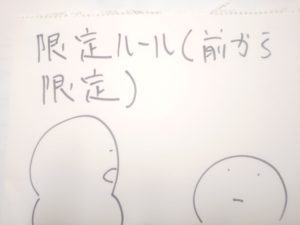 限定ルール(前から
限定)